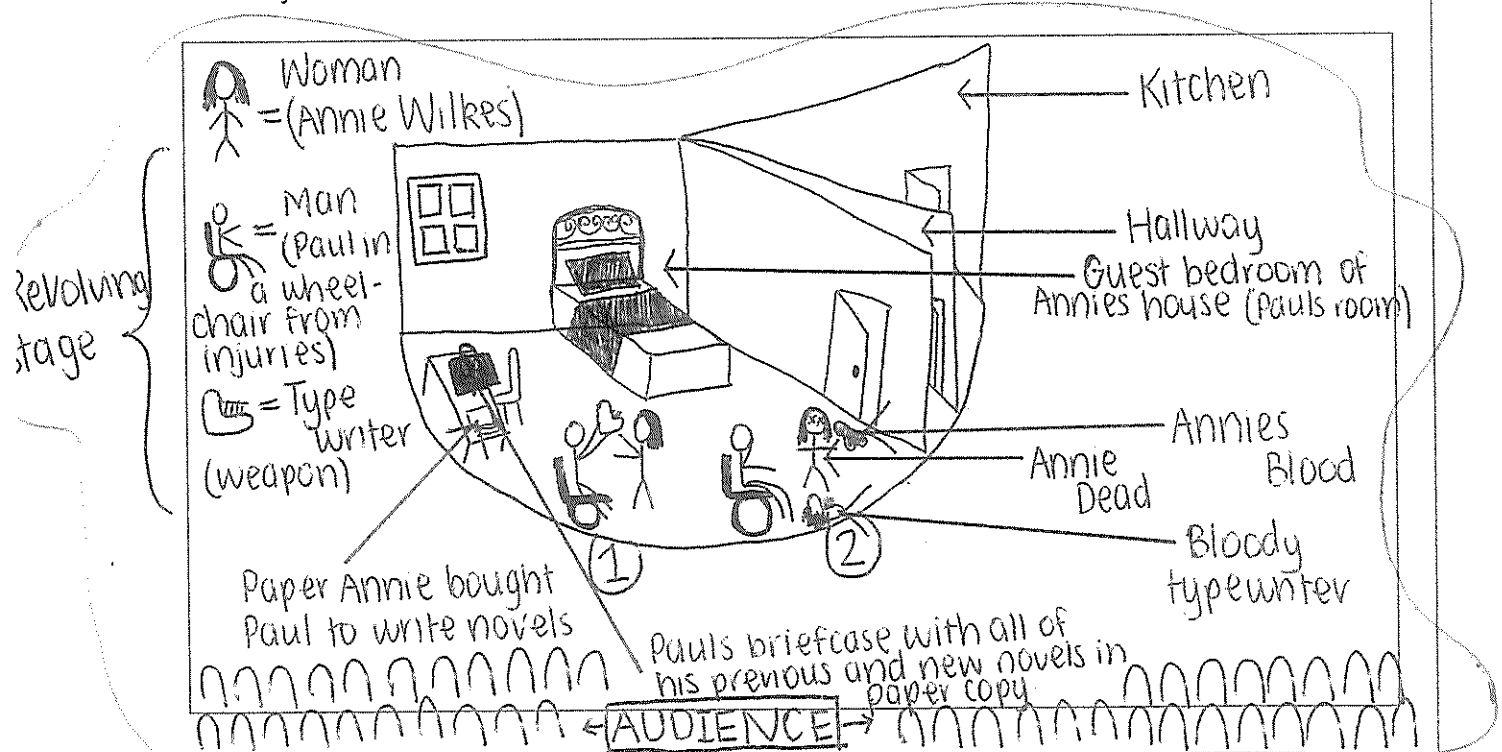 Woman
= (Annie Wilkes)
Revolving
stage
= Man
(Paul in
a wheel-
chair from
injuries)
= Type
writer
(weapon)
Kitchen
Hallway
Guest bedroom of
Annies house (Pauls room)
Annies
Blood
Annie
Dead
Bloody
typewriter
1
2
Paper Annie bought
Paul to write novels
Pauls briefcase with all of
his previous and new novels in
paper copy
← AUDIENCE →